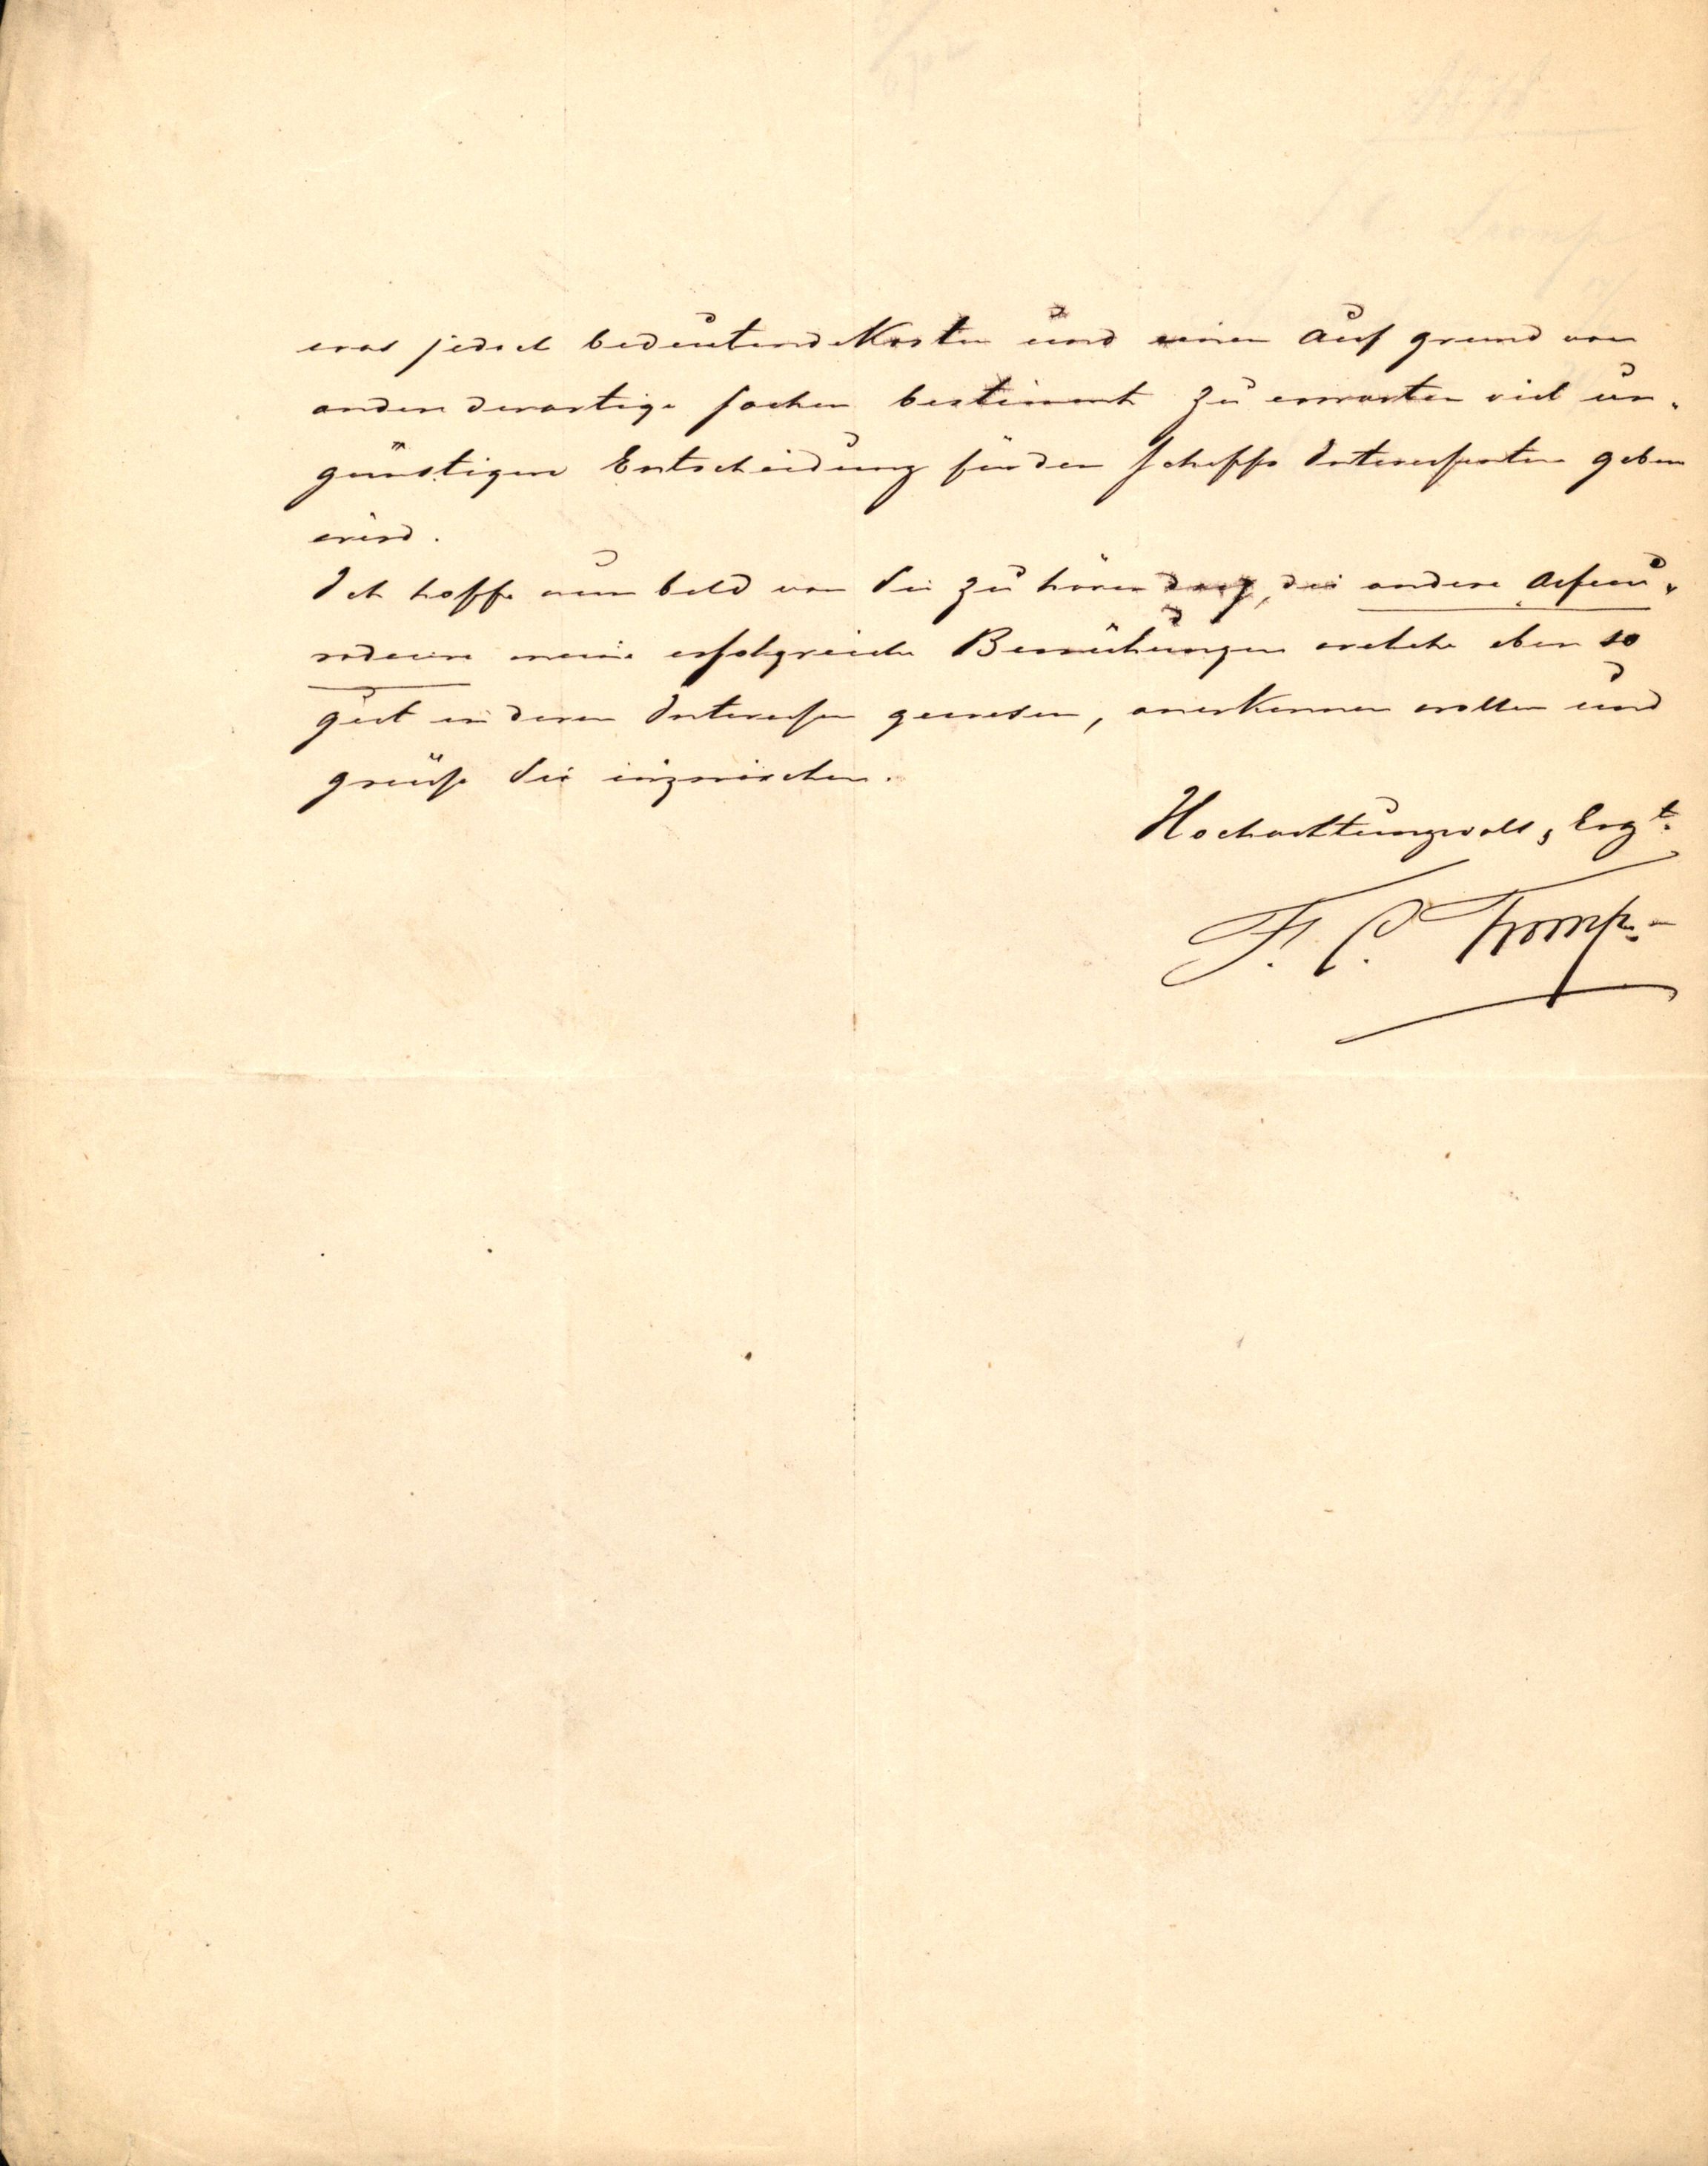 was jedoch bedeutende Kosten und einen auf grund von
andere derartige sachen bestimmt zu erwarten viel un-
günstigere Entscheidung für den schiffs Interessenten geben
wird.
Ich hoffe nun bald von Sie zu hören das, die andere Assecu-
radeure meine erfolgreiche Bemühungen welche eben so
gut in deren Interesse gewesen, anerkennen wollen und
grüsse Sie inzwischen.
Hochachtungsvoll, Ergt.
F. C. Tromp.